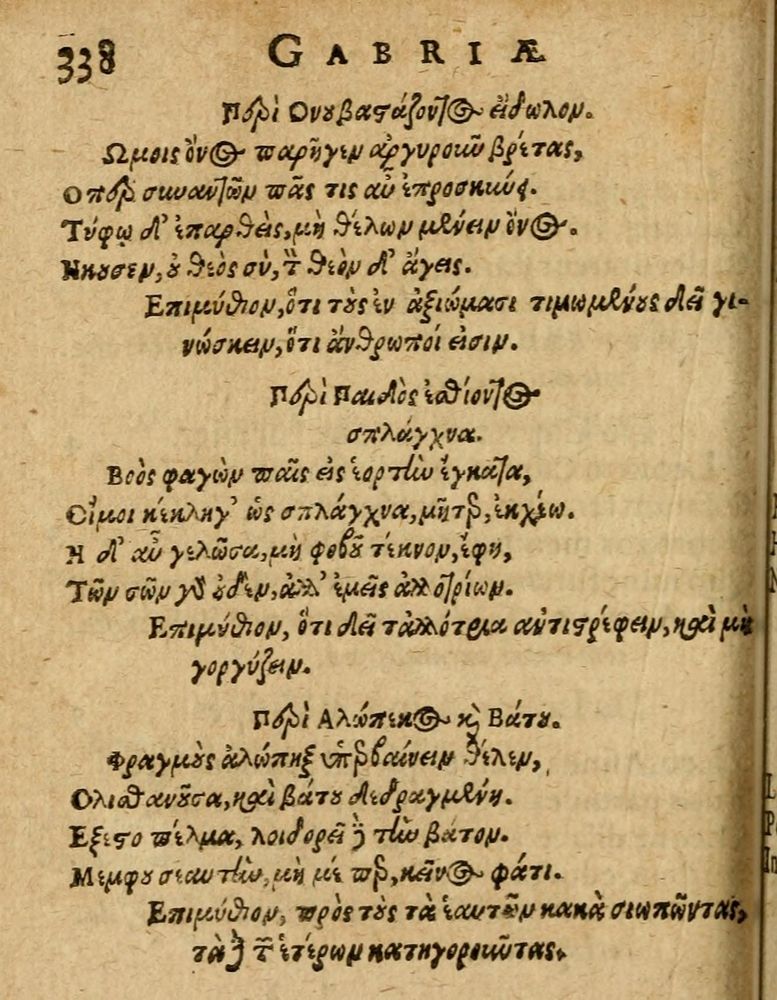 338 GABRIÆ
Περὶ Ονου βαστάζοντος εἴδωλον.
Ωμοις ὄνος παρῆγεν ἀργυροῦν βρέτας,
Οπερ συναντῶν πᾶς τις αὖ ἐπροσκύνει.
Τύφῳ δ' ἐπαρθεὶς, μὴ θέλων μένειν ὄνος.
Ηκουσεν, οὐ θεὸς σὺ, τὸν θεὸν δ' ἄγεις.
Επιμύθιον, ὅτι τοὺς ἐν ἀξιώμασι τιμωμένους δεῖ γι-
νώσκειν, ὅτι ἄνθρωποί εἰσιν.
Περὶ Παιδὸς ἐσθίοντος
σπλάγχνα.
Βοὸς φαγὼν παῖς εἰς ἑορτὴν ἔγκατα,
Οἴμοι κέκληγ' ὡς σπλάγχνα, μῆτερ, ἐκχέω.
Η δ' αὖ γελῶσα, μὴ φοβοῦ τέκνον, ἔφη,
Τῶν σῶν γὰρ οὐδὲν, ἀλλ' ἐμεῖς ἀλλοτρίων.
Επιμύθιον, ὅτι δεῖ τἀλλότρια ἀντιστρέφειν, καὶ μὴ
γοργύζειν.
Περὶ Αλώπεκος καὶ Βάτου.
Φραγμοὺς ἀλώπηξ ὑπερβαίνειν θέλεν,
Ολισθανοῦσα, καὶ βάτου δεδραγμένη.
Εξεστο πέλμα, λοιδορεῖ δὲ τὴν βάτον.
Μεμφου σεαυτὴν, μὴ μέ περ, κεῖνος φάτι.
Επιμύθιον, πρὸς τοὺς τὰ ἑαυτῶν κακὰ σιωπῶντας,
τὰ δὲ τῶν ἑτέρων κατηγοροῦντας.